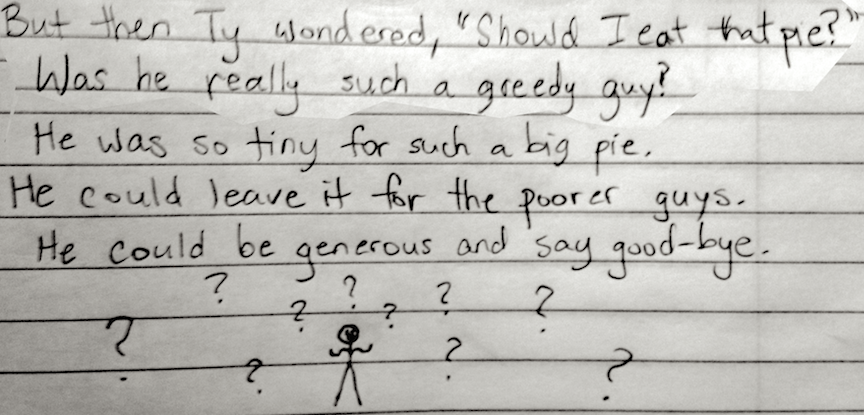 But then Ty wondered, "Should I eat that pie?"
Was he really such a greedy guy?
He was so tiny for such a big pie.
He could leave it for the poorer guys.
He could be generous and say good-bye.
? ? ? ?
? ?
? ?
? ?